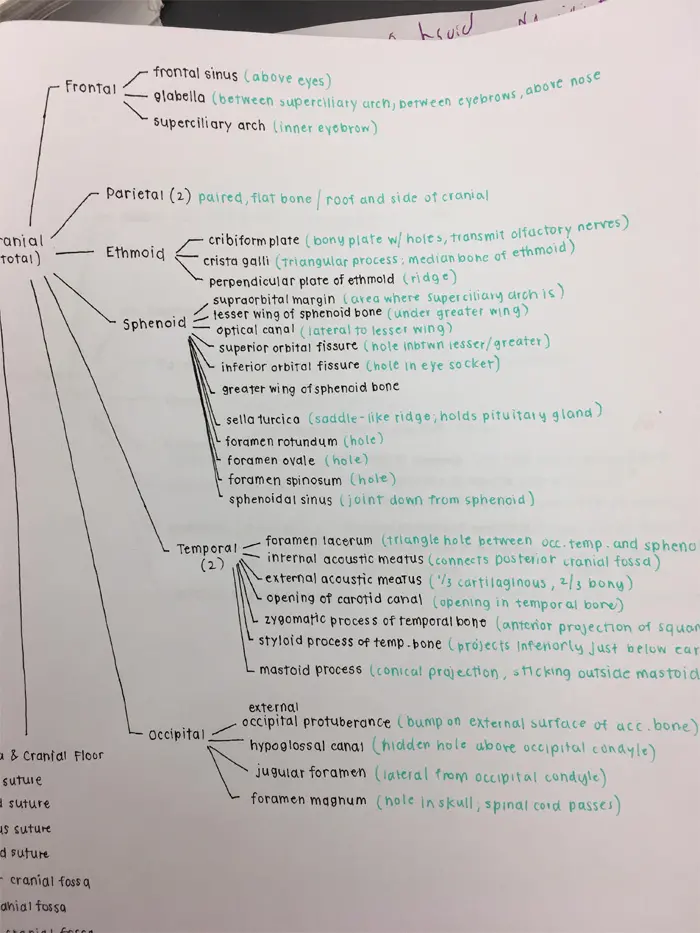 hyoid
Frontal
frontal sinus (above eyes)
glabella (between superciliary arch, between eyebrows, above nose
superciliary arch (inner eyebrow)
Parietal (2) paired, flat bone / roof and side of cranial
ranial
total)
Ethmoid
cribiform plate (bony plate w/ holes, transmit olfactory nerves)
crista galli (triangular process; median bone of ethmoid)
perpendicular plate of ethmoid (ridge)
Sphenoid
supraorbital margin (area where superciliary arch is)
lesser wing of sphenoid bone (under greater wing)
optical canal (lateral to lesser wing)
superior orbital fissure (hole inbtwn lesser/greater)
inferior orbital fissure (hole in eye socket)
greater wing of sphenoid bone
sella turcica (saddle-like ridge, holds pituitary gland)
foramen rotundum (hole)
foramen ovale (hole)
foramen spinosum (hole)
sphenoidal sinus (joint down from sphenoid)
Temporal
(2)
foramen lacerum (triangle hole between occ. temp. and spheno
internal acoustic meatus (connects posterior cranial fossa)
external acoustic meatus (1/3 cartilaginous, 2/3 bony)
opening of carotid canal (opening in temporal bone)
zygomatic process of temporal bone (anterior projection of squam
styloid process of temp. bone (projects inferiorly just below ear
mastoid process (conical projection, sticking outside mastoid
Occipital
external
occipital protuberance (bump on external surface of acc. bone)
hypoglossal canal (hidden hole above occipital condyle)
jugular foramen (lateral from occipital condyle)
foramen magnum (hole in skull, spinal cord passes)
a & Cranial Floor
suture
d suture
us suture
d suture
r cranial fossa
anial fossa
cranial fossa